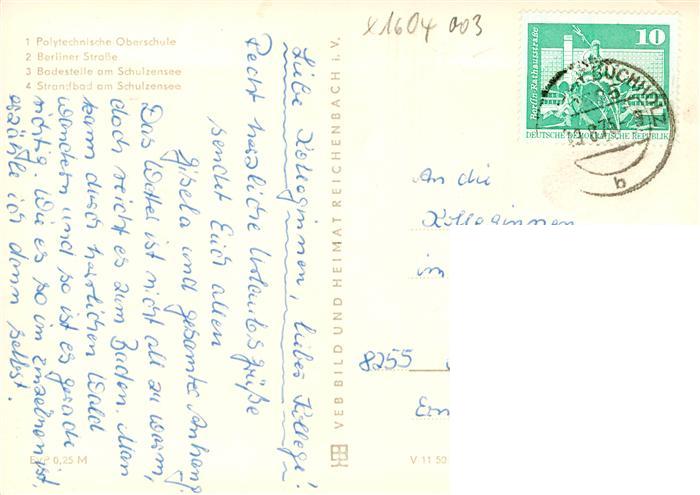 1 Polytechnische Oberschule
2 Berliner Straße
3 Badestelle am Schulzensee
4 Strandbad am Schulzensee
x1604 003
10
Berlin-Rathausstraße
DEUTSCHE DEMOKRATISCHE REPUBLIK
BUCHHOLZ
b
Liebe Kolleginnen, lieber Kollege!
Recht herzliche Urlaubsgrüße
sendet Euch allen
Gisela und gesamter Anhang.
Das Wetter ist nicht all zu warm,
doch reicht es zum Baden. Man
kann durch herrlichen Wald
wandern und so ist es gerade
richtig. Wie es so im einzelnen ist,
erzähle ich dann selbst.
VEB BILD UND HEIMAT REICHENBACH i. V.
An die
Kolleginnen
im
8255
EVP 0,25 M
V 11 50